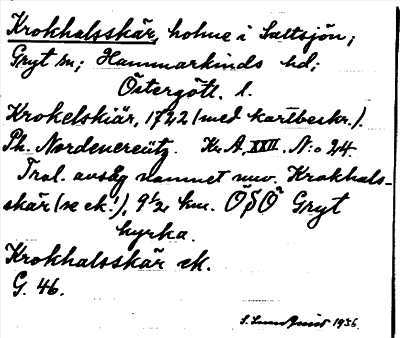 Krokhalsskär, holme i Saltsjön;
Gryt sn; Hammarkinds hd;
Östergötl. l.
Krokelskiär, 1722 (med kartbeskr.).
Ph. Nordencreütz. Kr. A, XXII. N:o 24.
Trol. avsåg namnet nuv. Krokhals-
skär (se ek!), 9½ km. ÖSÖ Gryt
kyrka.
Krokhalsskär ek.
G. 46.
S. Lundquist 1936.